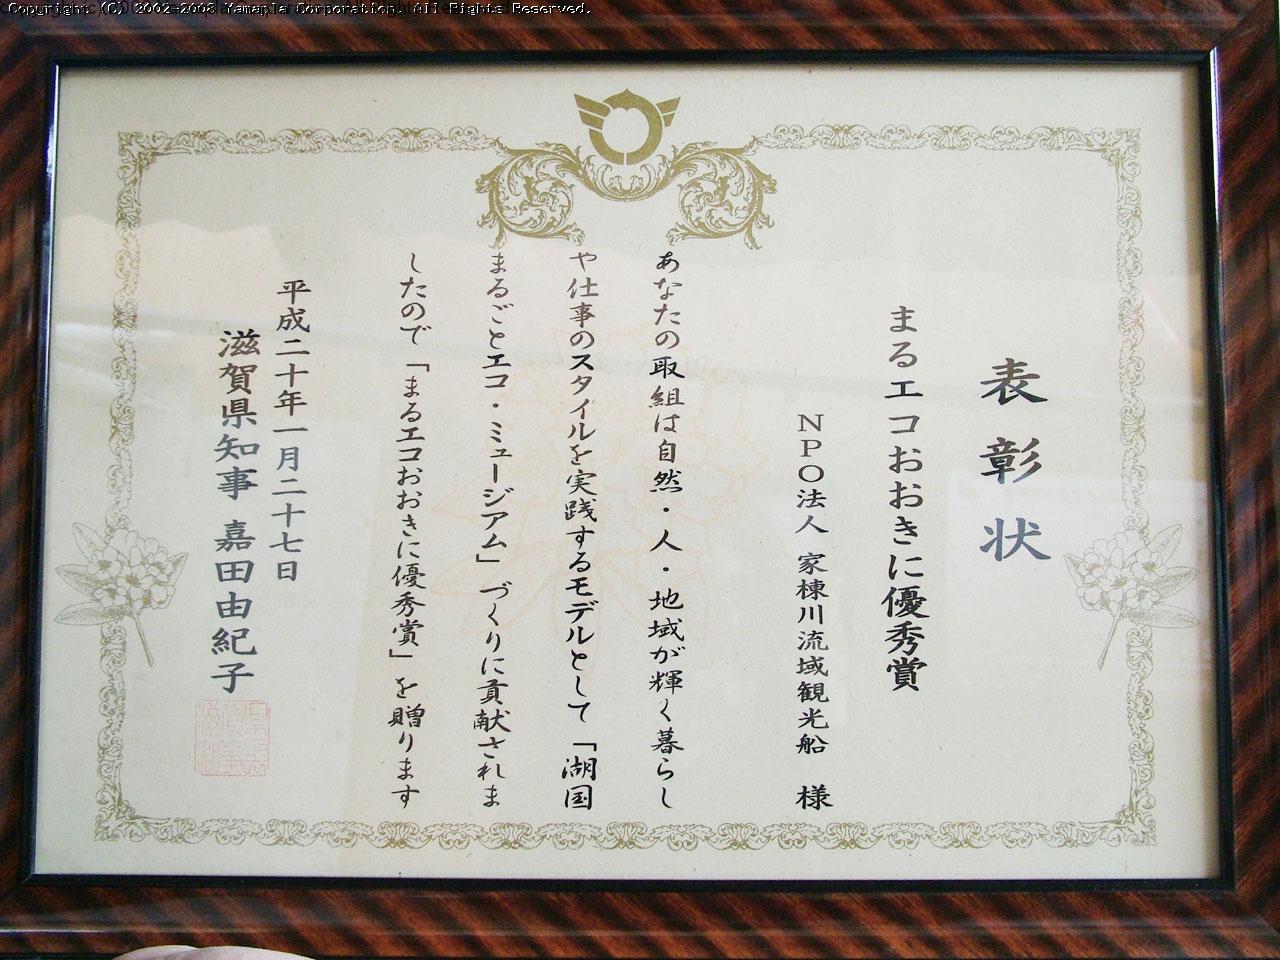 Copyright (C) 2002-2008 Yamapla Corporation. All Rights Reserved.
表彰状
まるエコおおきに優秀賞
NPO法人 家棟川流域観光船 様
あなたの取組は自然・人・地域が輝く暮らし
や仕事のスタイルを実践するモデルとして「湖国
まるごとエコ・ミュージアム」づくりに貢献されま
したので「まるエコおおきに優秀賞」を贈ります
平成二十年一月二十七日
滋賀県知事 嘉田由紀子